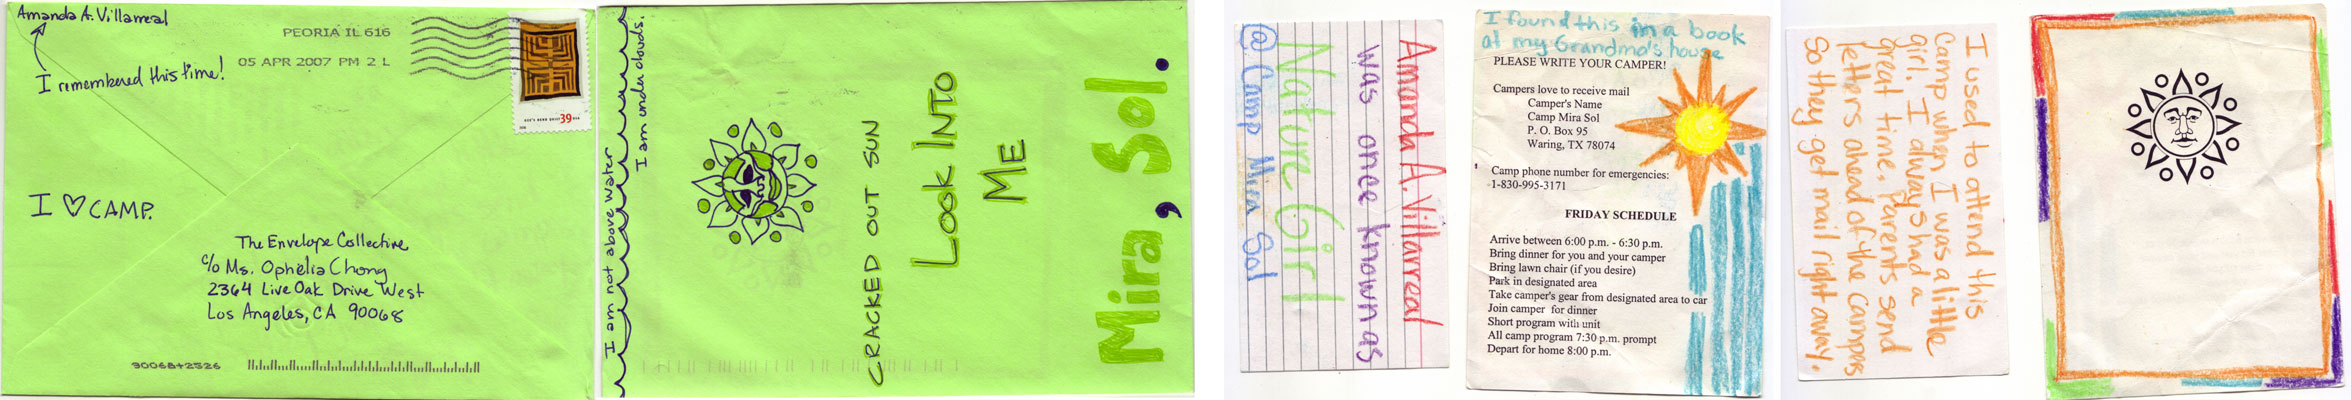 Amanda A. Villarreal
I remembered this time!
PEORIA IL 616
05 APR 2007 PM 2 L
GEE'S BEND QUILT 39 USA
I ♡ CAMP.
The Envelope Collective
c/o Ms. Ophelia Chong
2364 Live Oak Drive West
Los Angeles, CA 90068
90068+2326
I am not above water
I am under clouds.
CRACKED OUT SUN
LOOK INTO
ME
Mira, Sol.
Amanda A. Villarreal
was once known as
Nature Girl
@ Camp Mira Sol
I found this in a book
at my Grandma's house
PLEASE WRITE YOUR CAMPER!
Campers love to receive mail
Camper's Name
Camp Mira Sol
P. O. Box 95
Waring, TX 78074
Camp phone number for emergencies:
1-830-995-3171
FRIDAY SCHEDULE
Arrive between 6:00 p.m. - 6:30 p.m.
Bring dinner for you and your camper
Bring lawn chair (if you desire)
Park in designated area
Take camper's gear from designated area to car
Join camper for dinner
Short program with unit
All camp program 7:30 p.m. prompt
Depart for home 8:00 p.m.
I used to attend this
camp when I was a little
girl. I always had a
great time. Parents send
letters ahead of the campers
so they get mail right away.